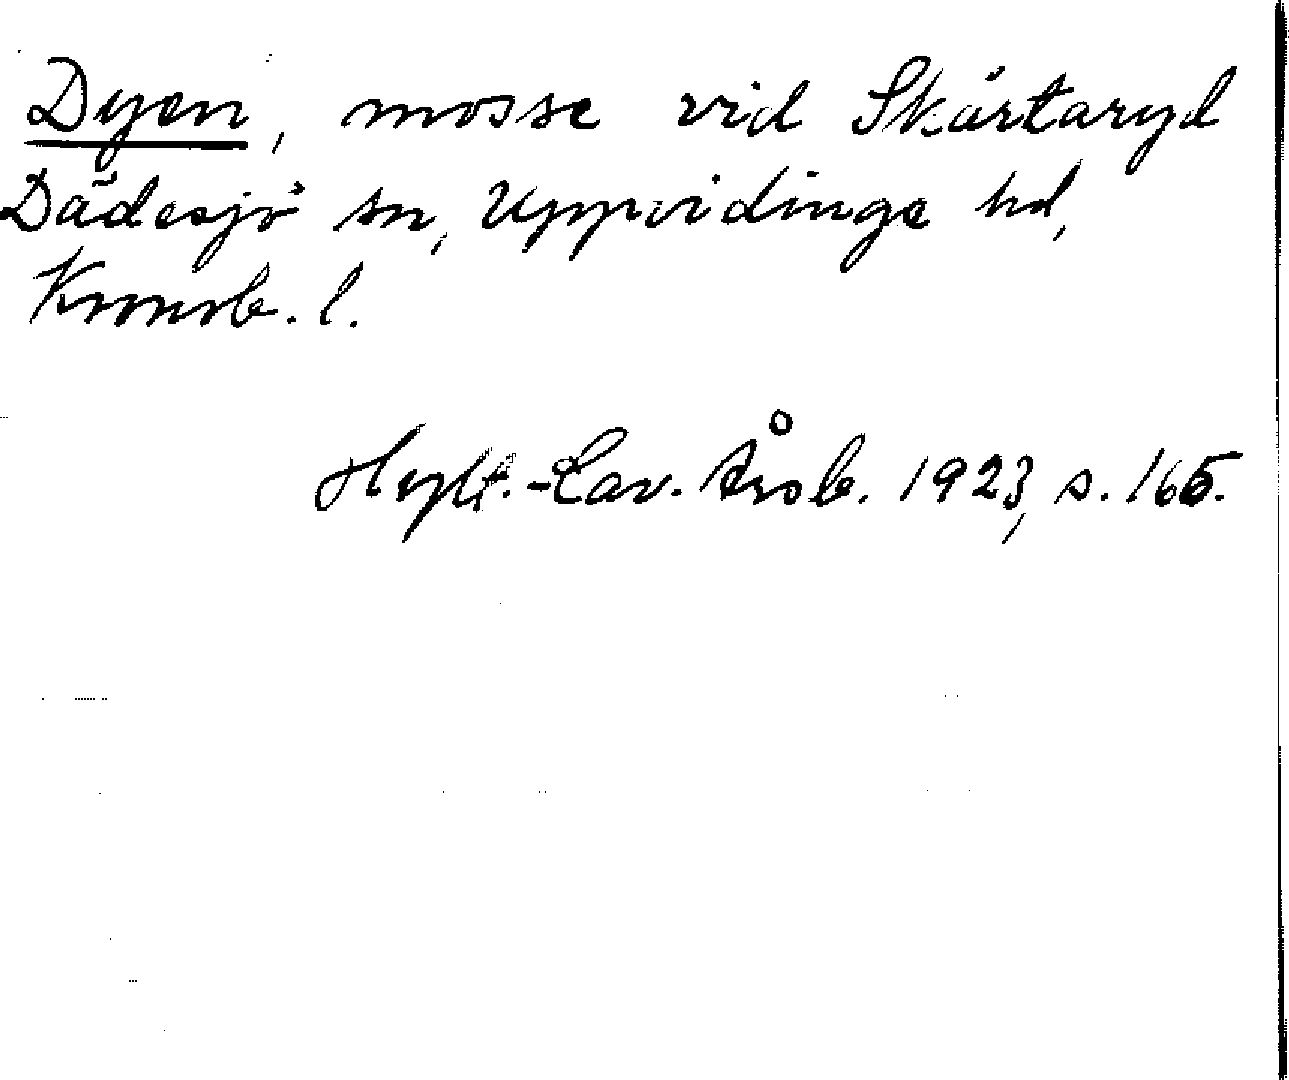 Dyen, mosse vid Skårtaryd
Dädesjö sn, Uppvidinge hd,
Kronob. l.
Hylt.-Cav. Årsb. 1923, s. 165.